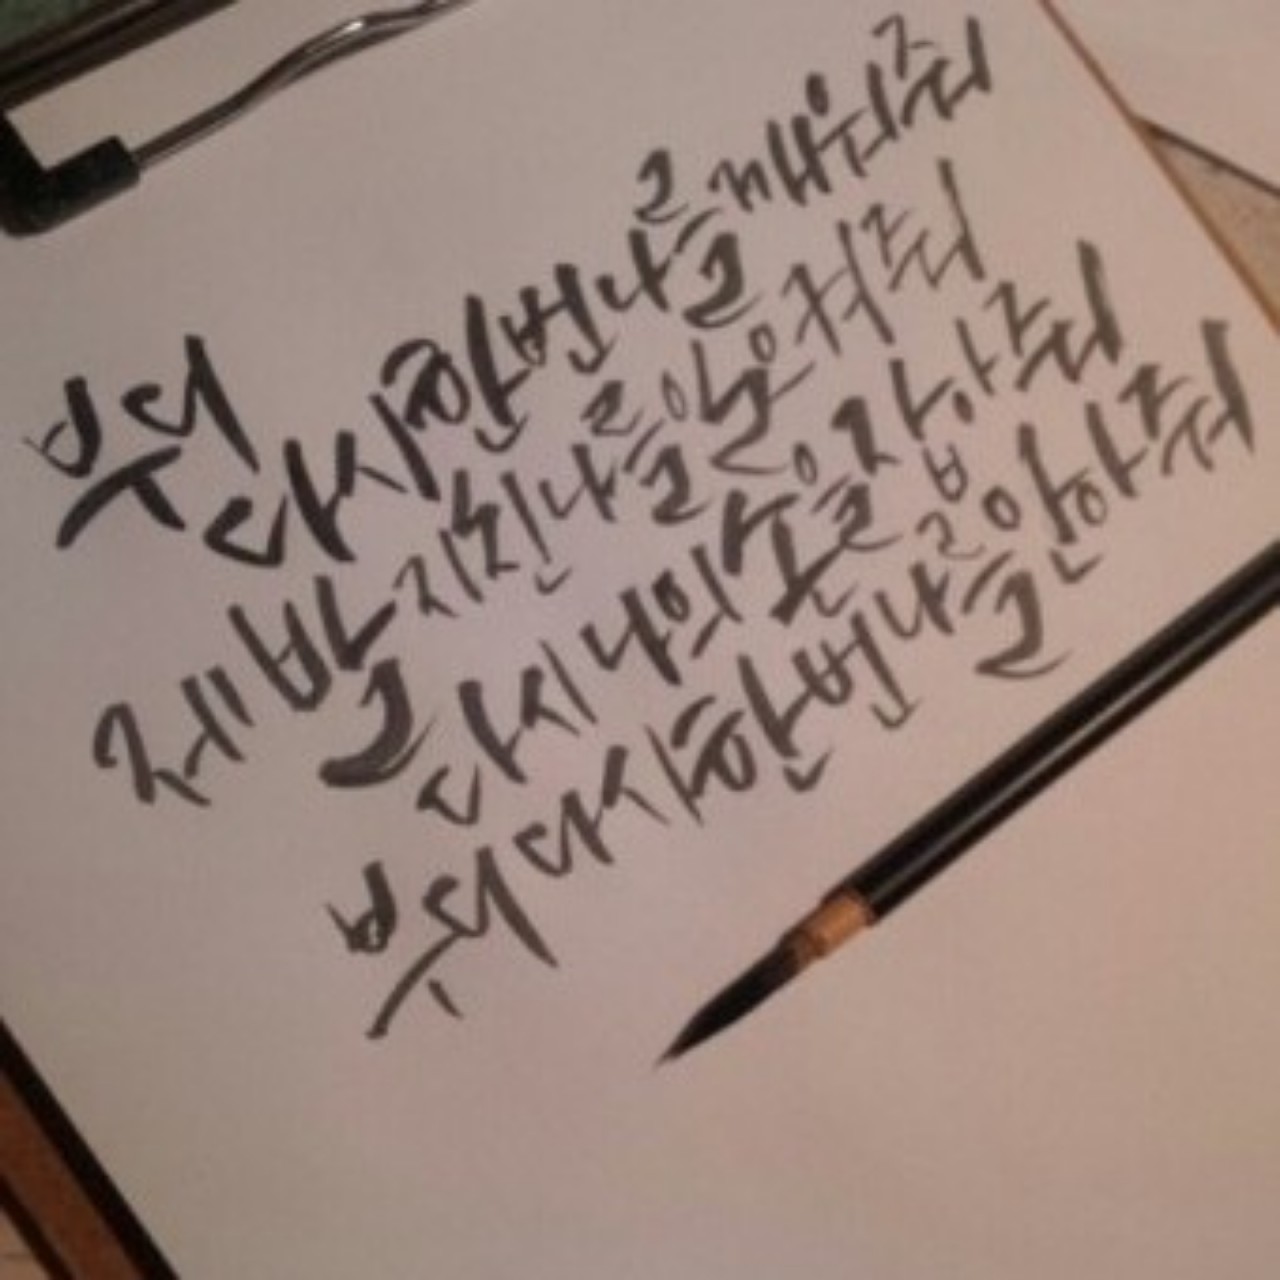 부디 다시 한번 나를 깨워줘
제발 지친 나를 일으켜줘
다시 나의 손을 잡아줘
부디 다시 한번 나를 안아줘